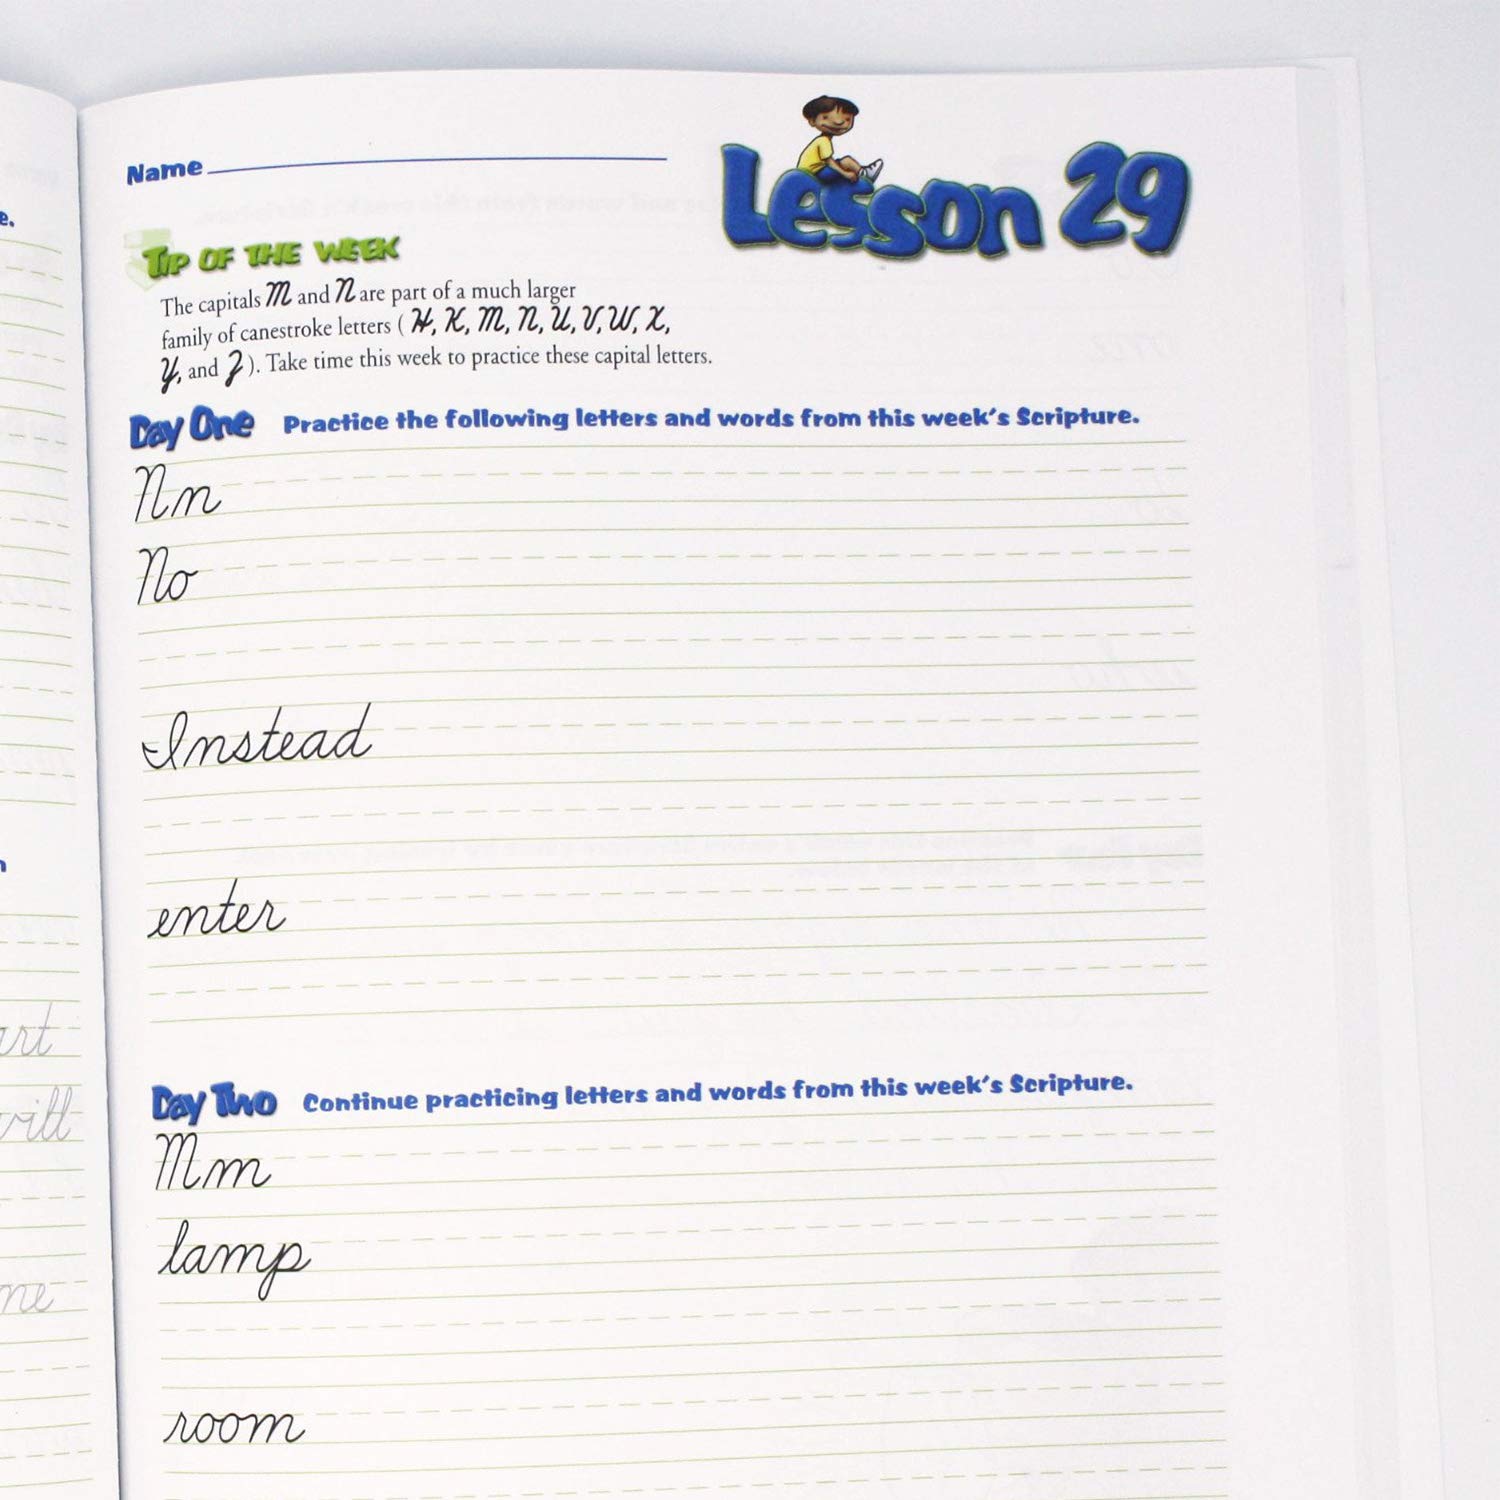 Name
Lesson 29
Tip of the Week
The capitals M and N are part of a much larger
family of canestroke letters ( H, K, M, N, U, V, W, X,
Y, and Z ). Take time this week to practice these capital letters.
Day One Practice the following letters and words from this week's Scripture.
Nn
No
Instead
enter
Day Two Continue practicing letters and words from this week's Scripture.
Mm
lamp
room
will